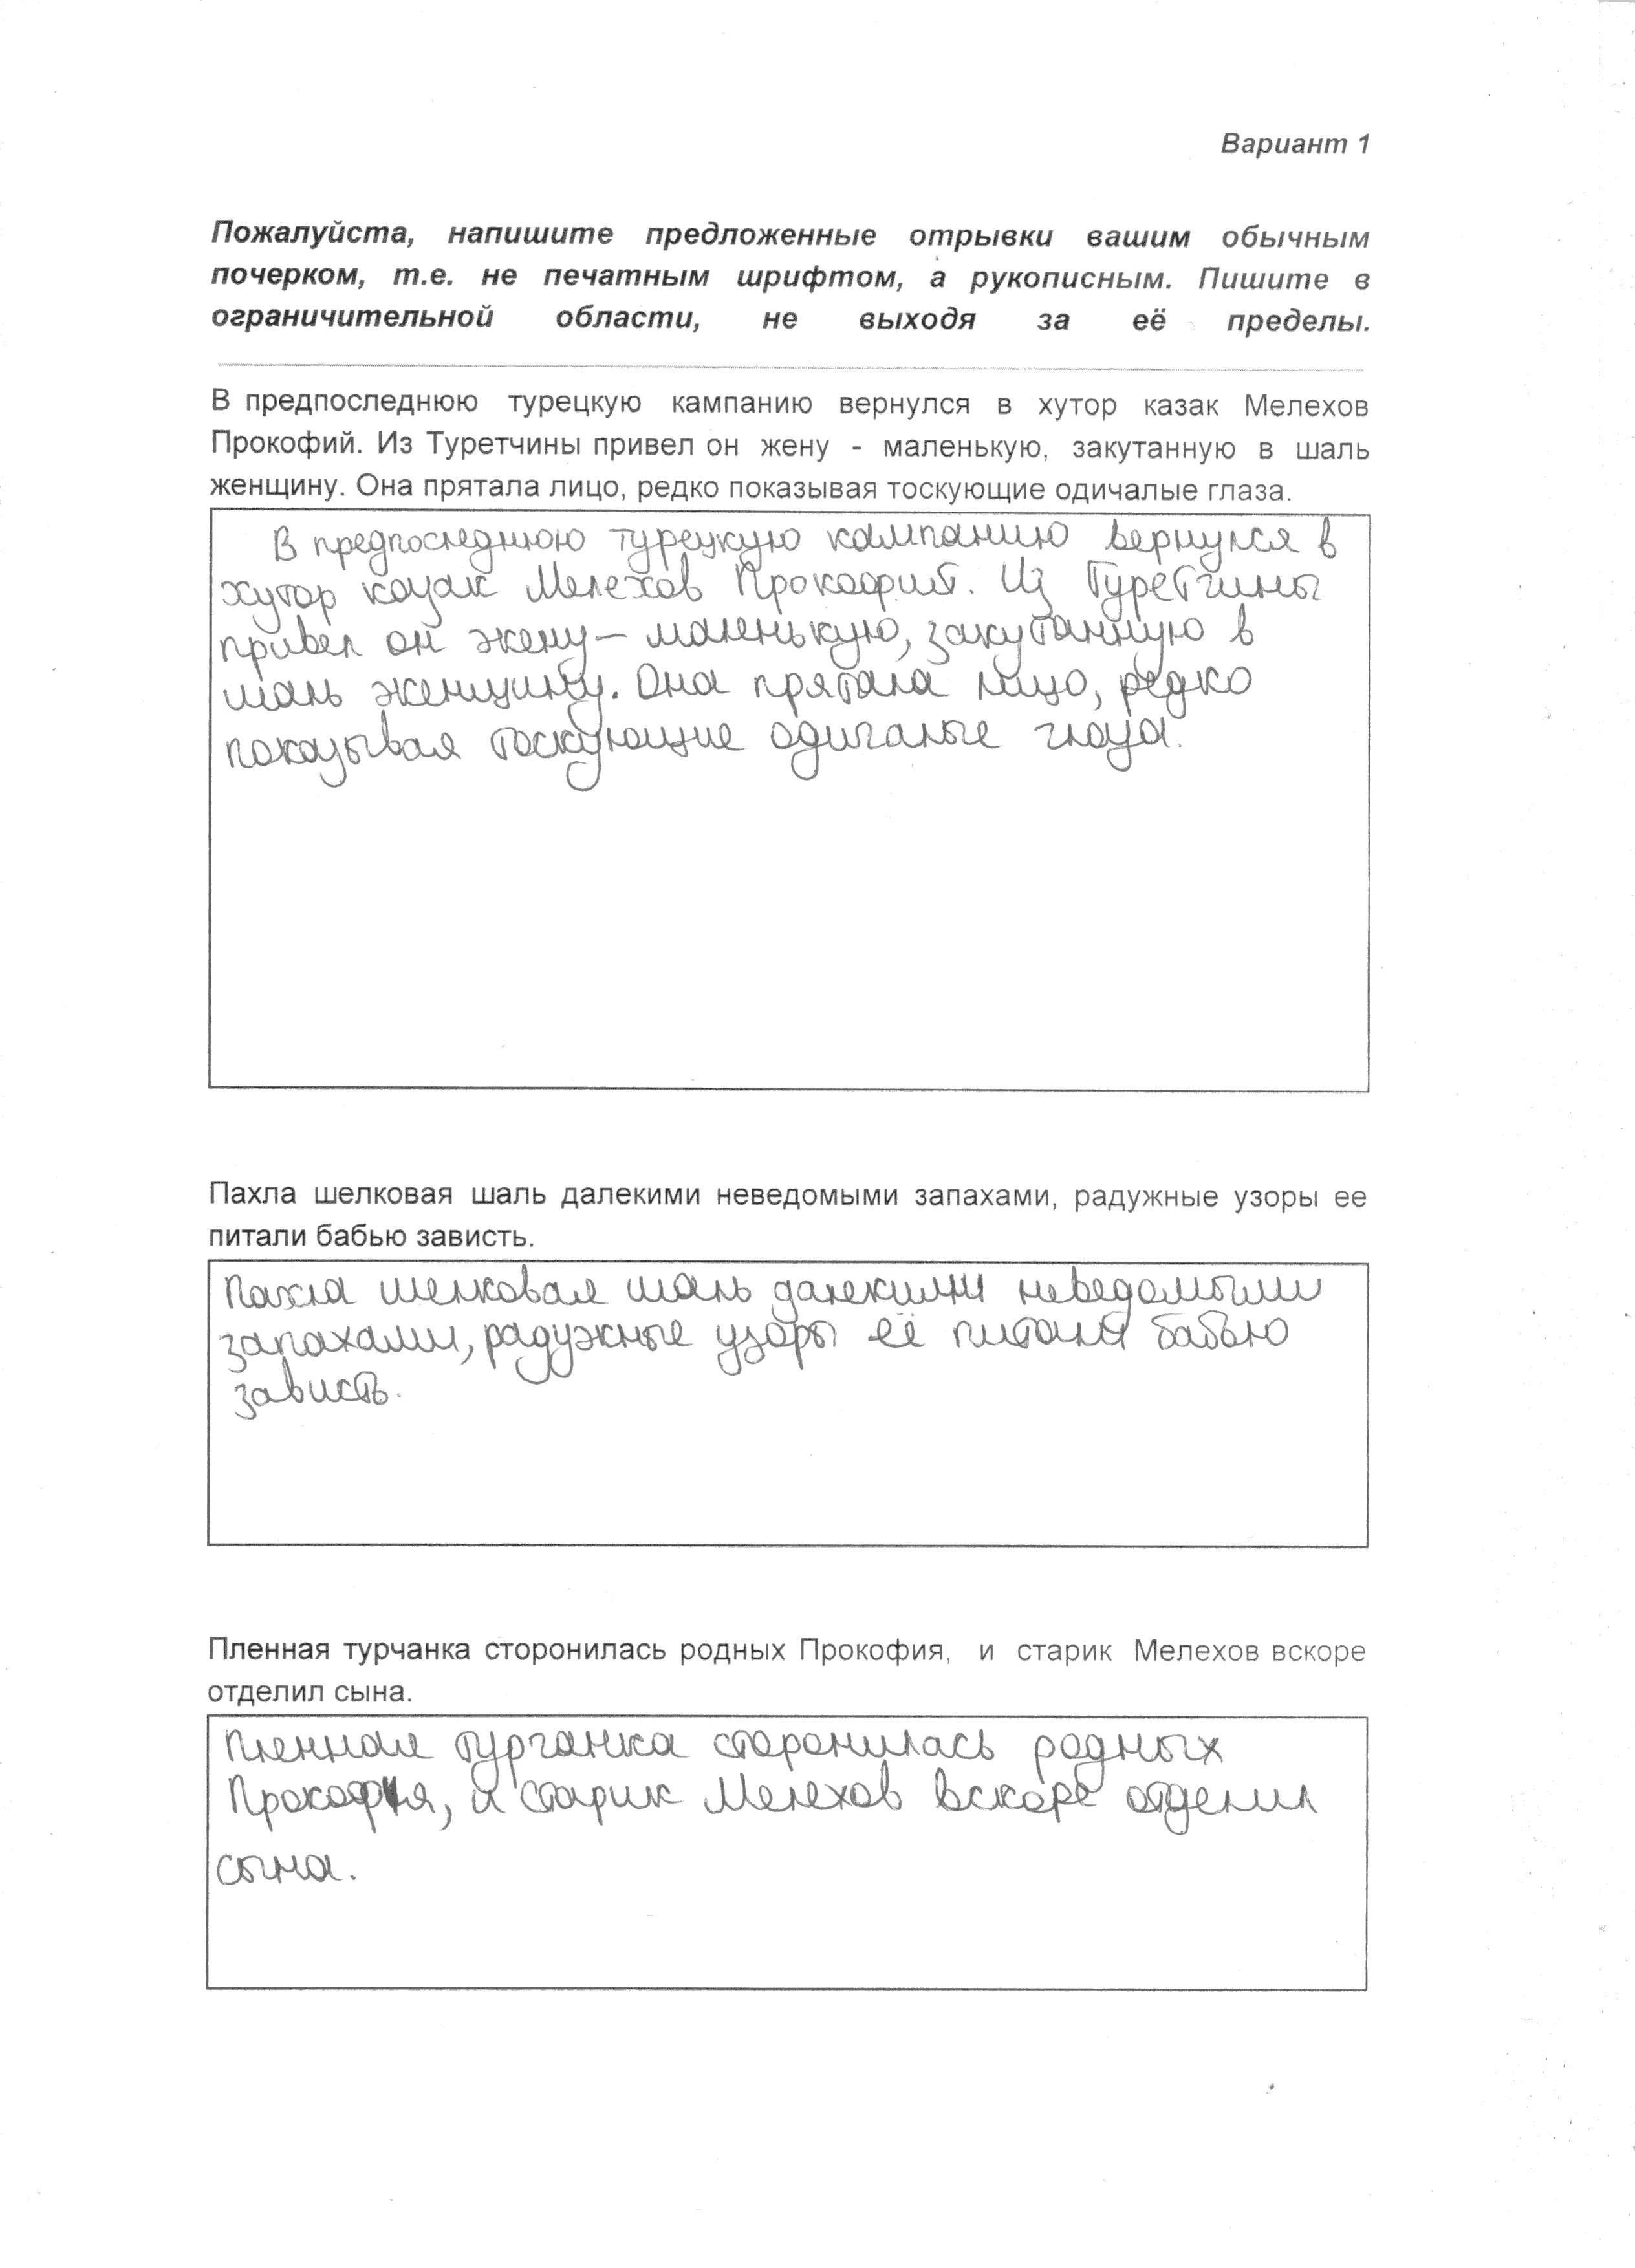 Вариант 1
Пожалуйста, напишите предложенные отрывки вашим обычным
почерком, т.е. не печатным шрифтом, а рукописным. Пишите в
ограничительной области, не выходя за её пределы.
В предпоследнюю турецкую кампанию вернулся в хутор казак Мелехов
Прокофий. Из Туретчины привел он жену - маленькую, закутанную в шаль
женщину. Она прятала лицо, редко показывая тоскующие одичалые глаза.
В предпоследнюю турецкую кампанию вернулся в
хутор казак Мелехов Прокофий. Из Туретчины
привел он жену – маленькую, закутанную в
шаль женщину. Она прятала лицо, редко
показывая тоскующие одичалые глаза.
Пахла шелковая шаль далекими неведомыми запахами, радужные узоры ее
питали бабью зависть.
Пахла шелковая шаль далекими неведомыми
запахами, радужные узоры её питали бабью
зависть.
Пленная турчанка сторонилась родных Прокофия, и старик Мелехов вскоре
отделил сына.
Пленная турчанка сторонилась родных
Прокофия, и старик Мелехов вскоре отделил
сына.